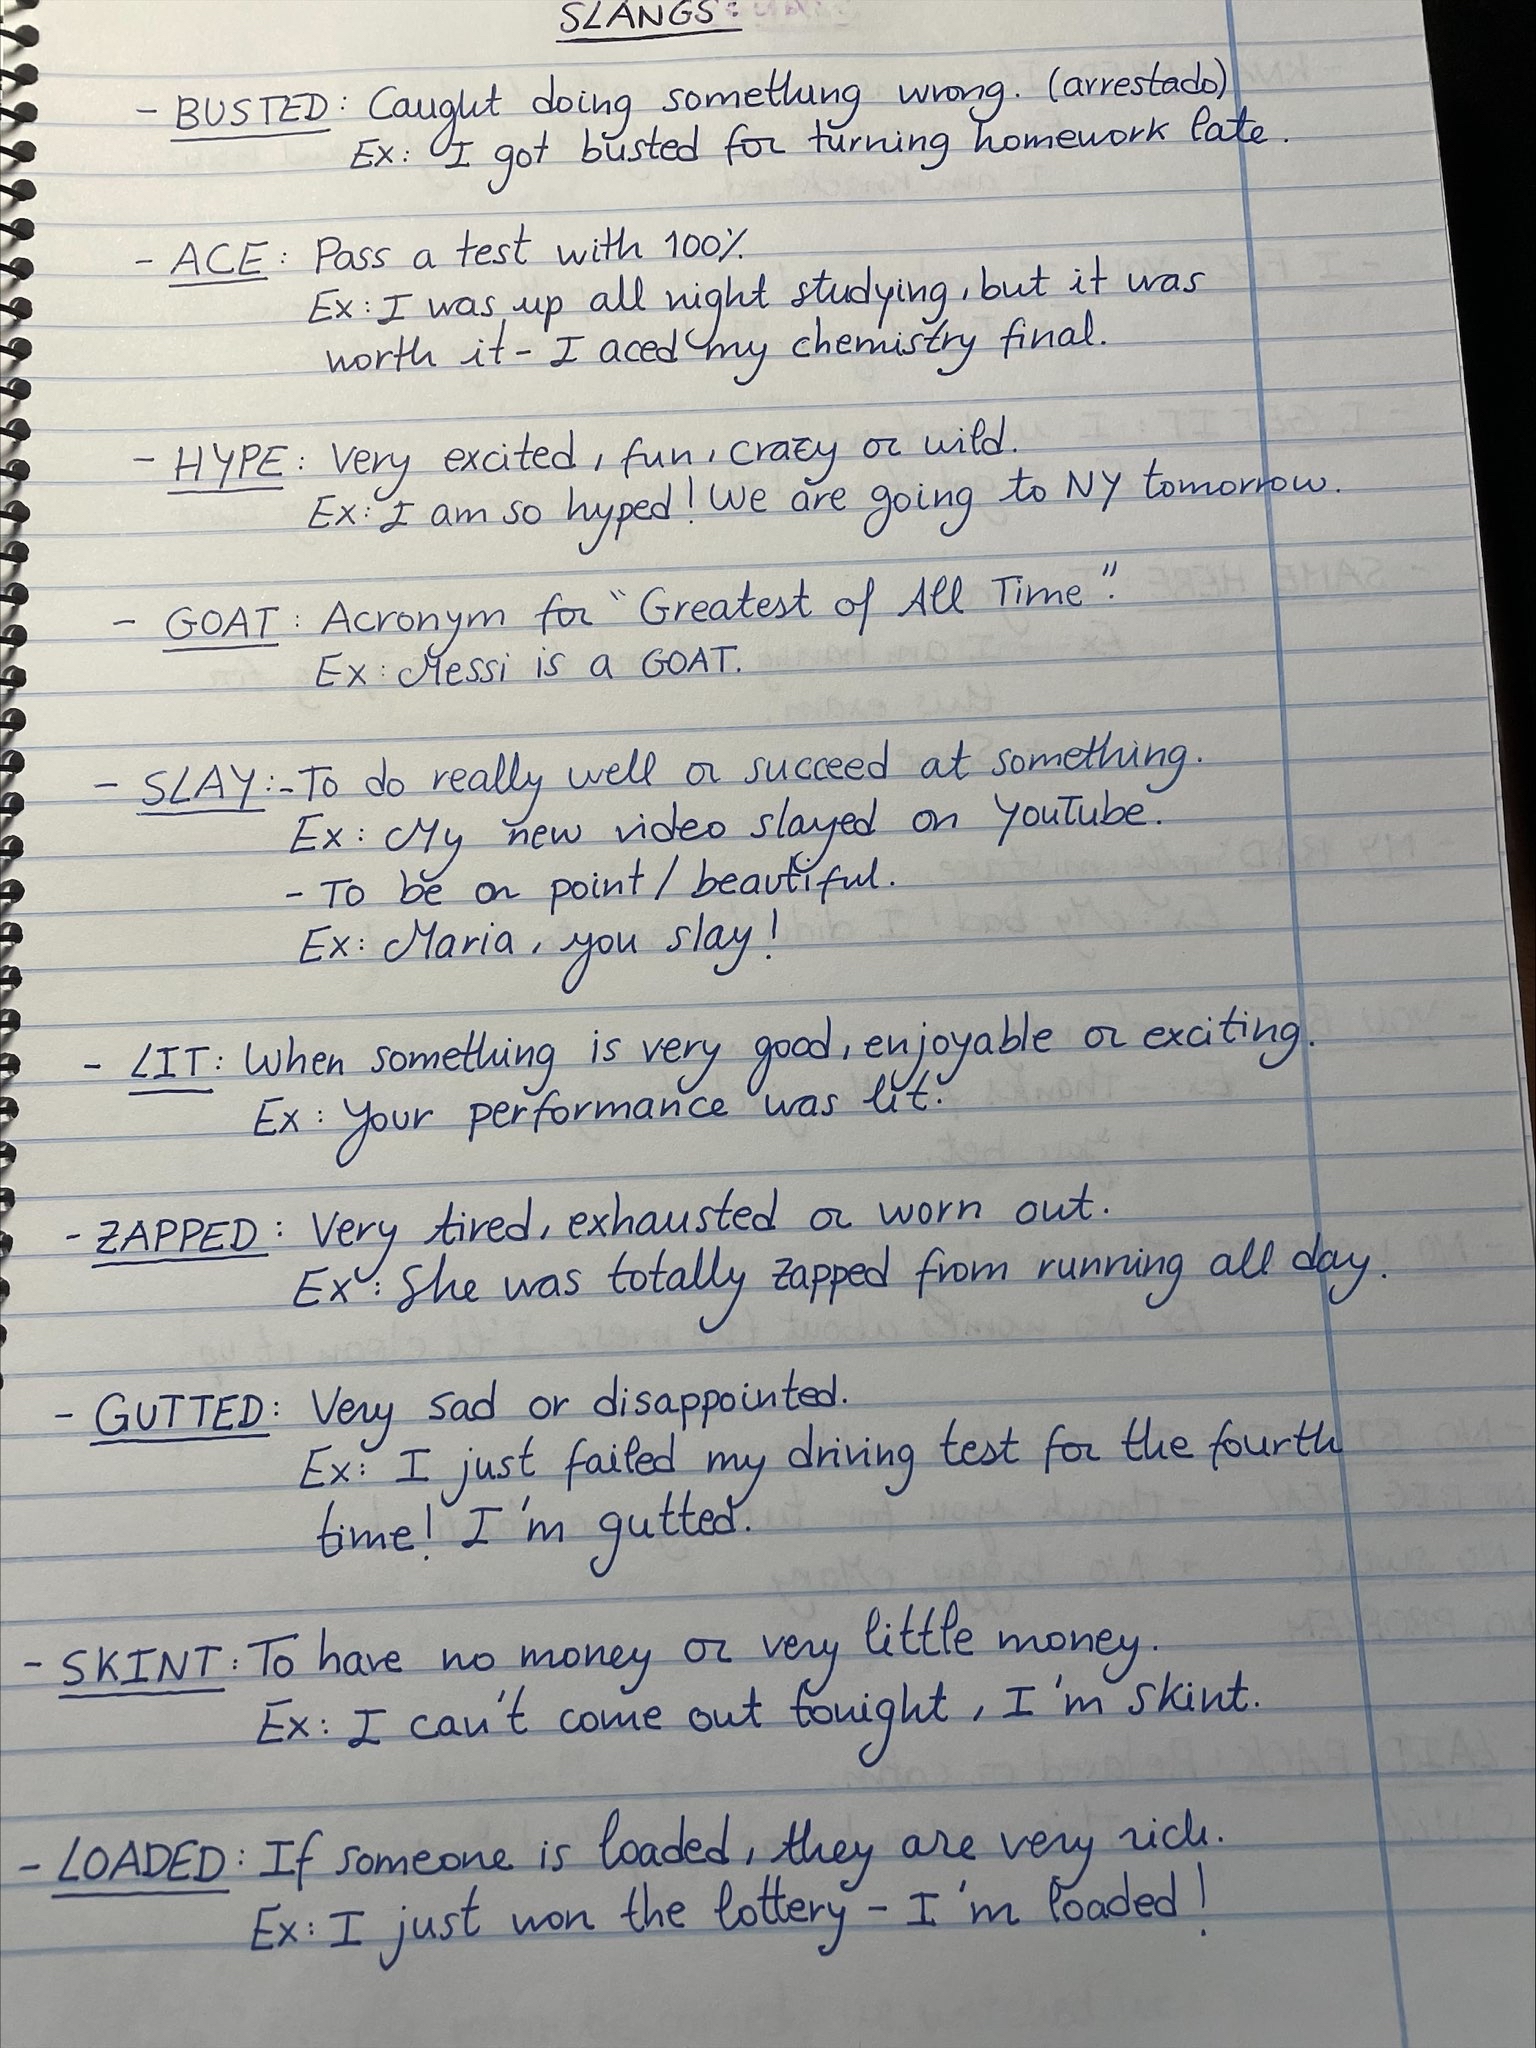 SLANGS:
- BUSTED: Caught doing something wrong. (arrestado)
Ex: I got busted for turning homework late.
- ACE: Pass a test with 100%
Ex: I was up all night studying, but it was
worth it - I aced my chemistry final.
- HYPE: Very excited, fun, crazy or wild.
Ex: I am so hyped! We are going to NY tomorrow.
- GOAT: Acronym for "Greatest of All Time".
Ex: Messi is a GOAT.
- SLAY: - To do really well or succeed at something.
Ex: My new video slayed on YouTube.
- To be on point / beautiful.
Ex: Maria, you slay!
- LIT: When something is very good, enjoyable or exciting.
Ex: Your performance was lit.
- ZAPPED: Very tired, exhausted or worn out.
Ex: She was totally zapped from running all day.
- GUTTED: Very sad or disappointed.
Ex: I just failed my driving test for the fourth
time! I'm gutted.
- SKINT: To have no money or very little money.
Ex: I can't come out tonight, I'm skint.
- LOADED: If someone is loaded, they are very rich.
Ex: I just won the lottery - I'm loaded!